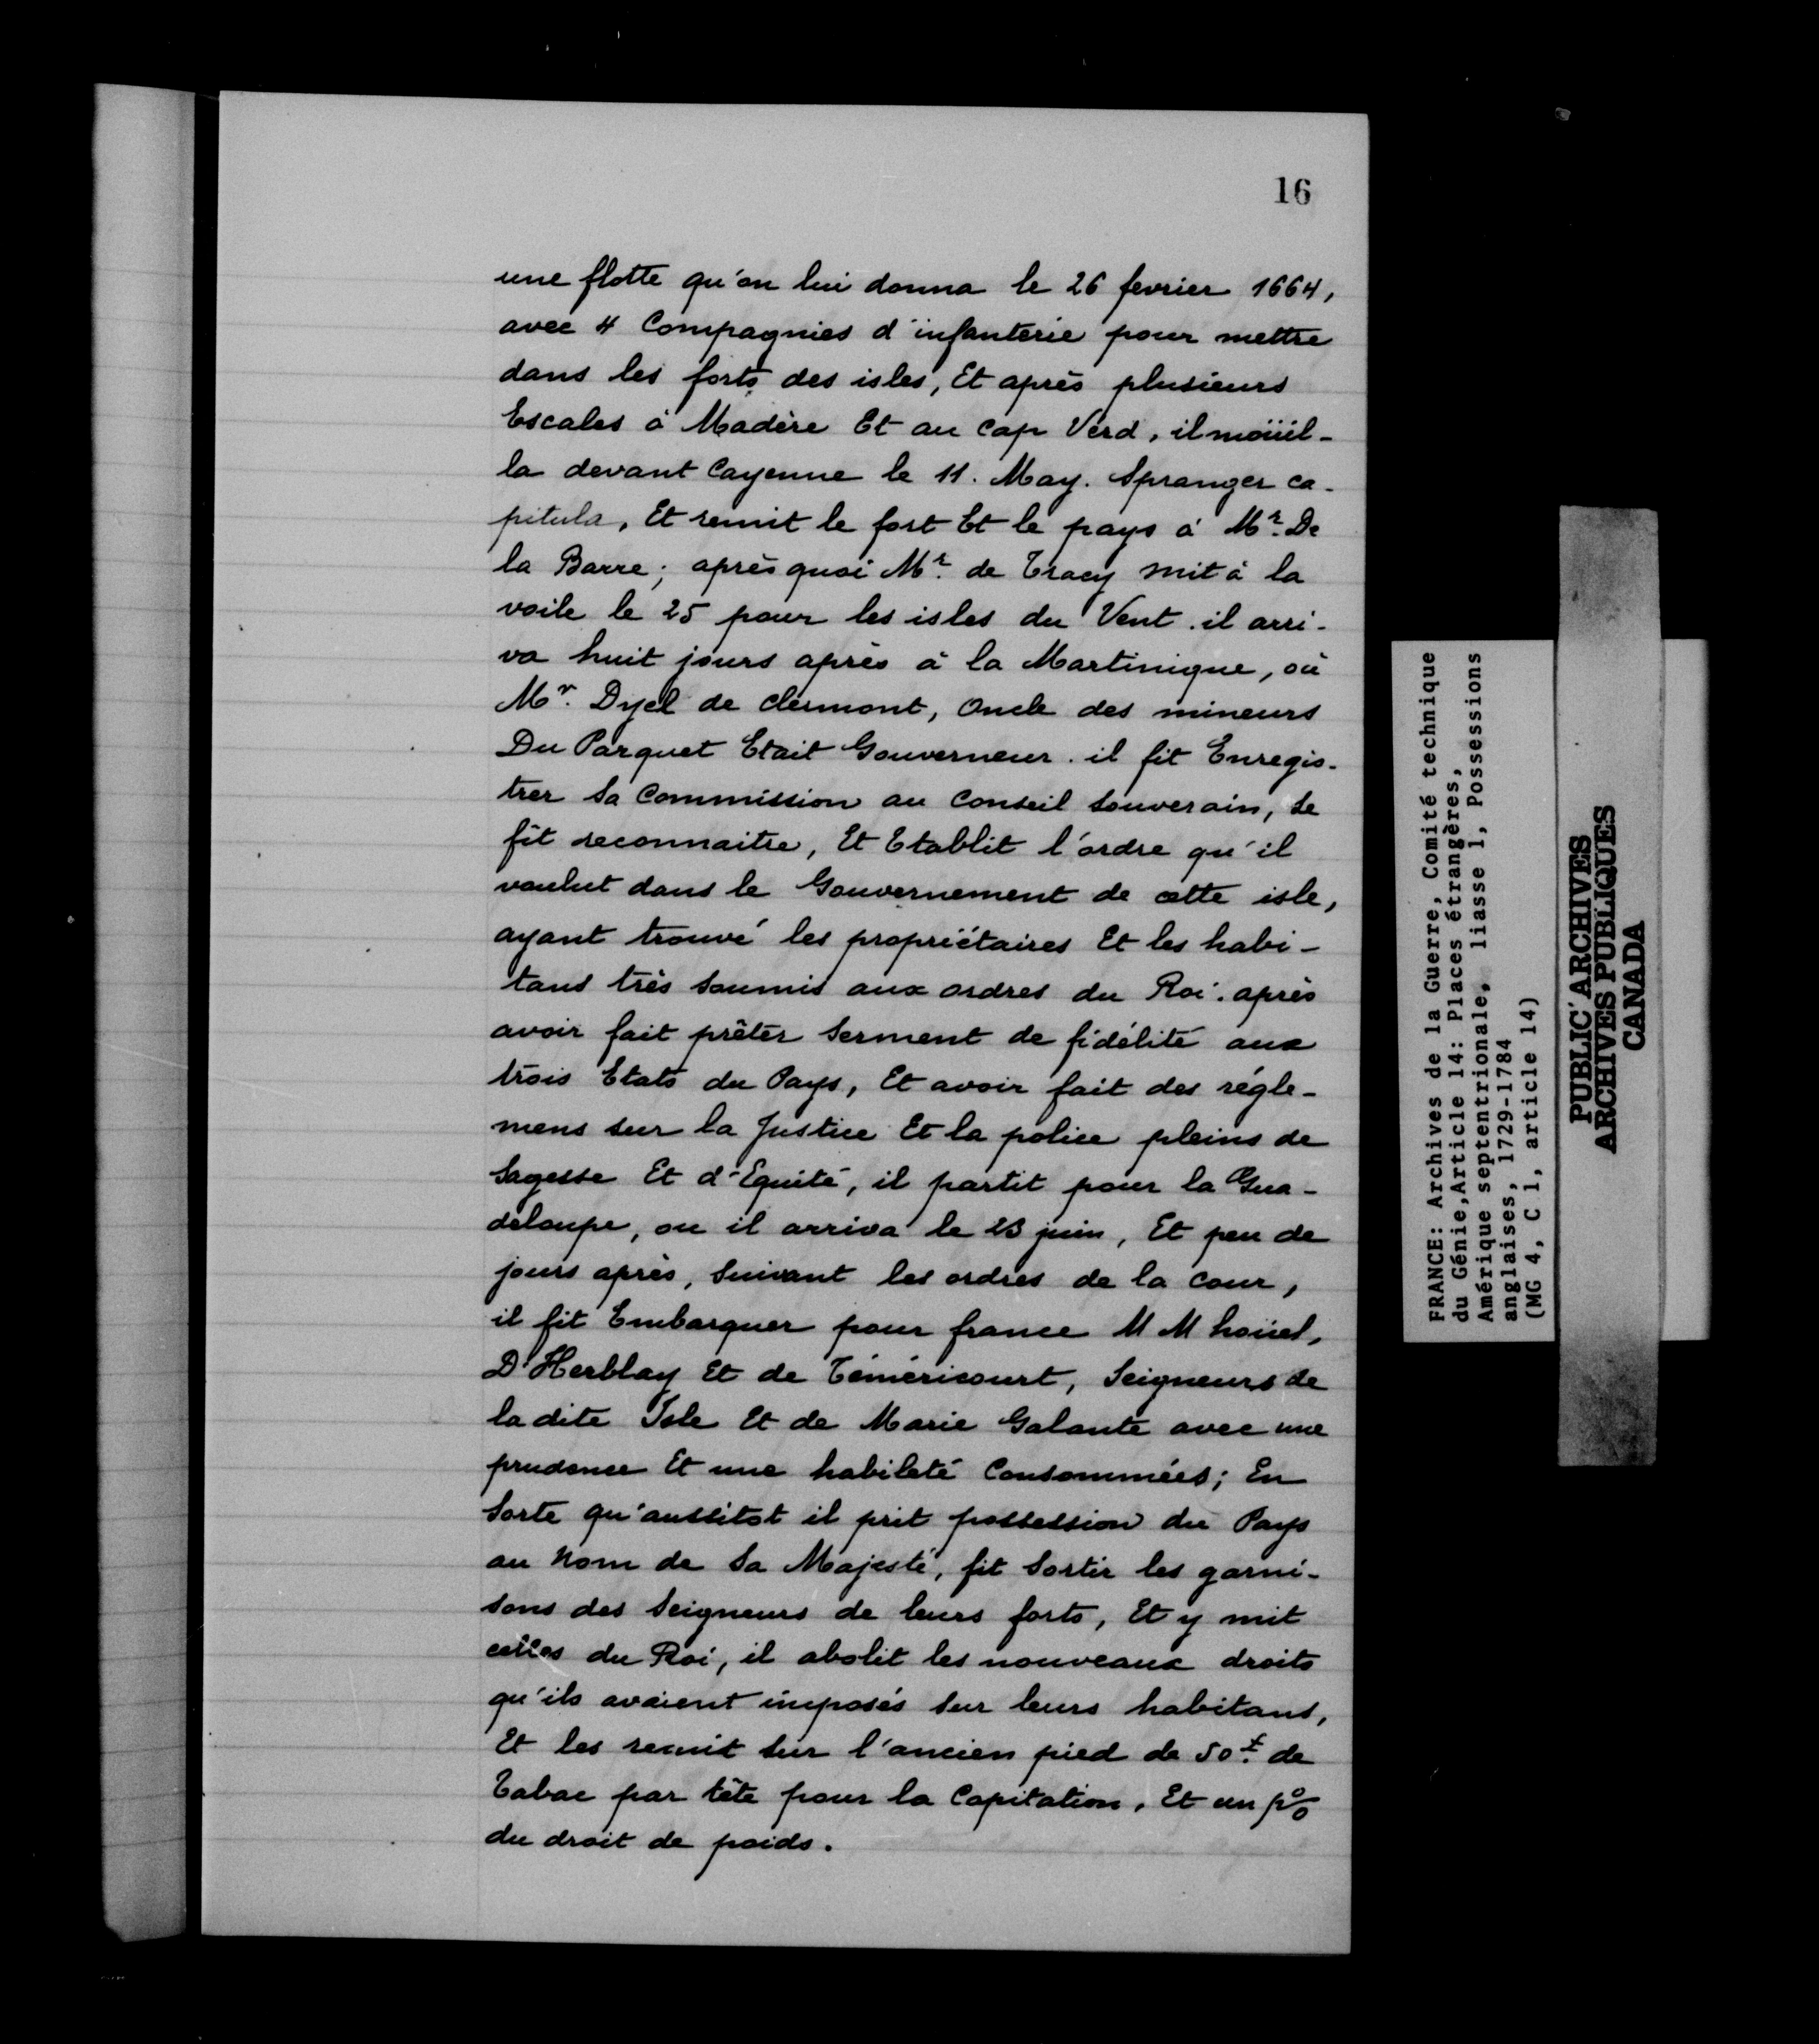 16
une flotte qu'on lui donna le 26 fevrier 1664,
avec 4 Compagnies d'infanterie pour mettre
dans les forts des isles, Et après plusieurs
Escales à Madère Et au Cap Verd, il moüil-
la devant Cayenne le 11. May. Spranger ca-
pitula, Et remit le fort Et le pays à Mr. De
la Barre; après quoi Mr. de Tracy mit à la
voile le 25 pour les isles du Vent. il arri-
va huit jours après à la Martinique, où
Mr. Dyel de Clermont, Oncle des mineurs
Du Parquet Etait Gouverneur. il fit Enregis-
trer Sa Commission au Conseil Souverain, Se
fit reconnaitre, Et Etablit l'ordre qu'il
voulut dans le Gouvernement de cette isle,
ayant trouvé les propriétaires Et les habi-
tans très Soumis aux ordres du Roi. après
avoir fait prêter Serment de fidélité aux
trois Etats du Pays, Et avoir fait des régle-
mens sur la Justice Et la police pleins de
Sagesse Et d'Equité, il partit pour la Gua-
deloupe, ou il arriva le 23 juin, Et peu de
jours après, Suivant les ordres de la Cour,
il fit Embarquer pour france M M hoüel,
D'Herblay Et de Téméricourt, Seigneurs de
la dite Isle Et de Marie Galante avec une
prudence Et une habileté Consommées; En
Sorte qu'aussitot il prit possession du Pays
au Nom de Sa Majesté, fit Sortir les garni-
sons des Seigneurs de leurs forts, Et y mit
celles du Roi, il abolit les nouveaux droits
qu'ils avaient imposés Sur leurs habitans,
Et les remit Sur l'ancien pied de 50 ₶. de
Tabac par tête pour la Capitation, Et un p%
du droit de poids.
FRANCE: Archives de la Guerre, Comité technique
du Génie,Article 14: Places étrangères,
Amérique septentrionale, liasse 1, Possessions
anglaises, 1729-1784
(MG 4, C 1, article 14)
PUBLIC ARCHIVES
ARCHIVES PUBLIQUES
CANADA